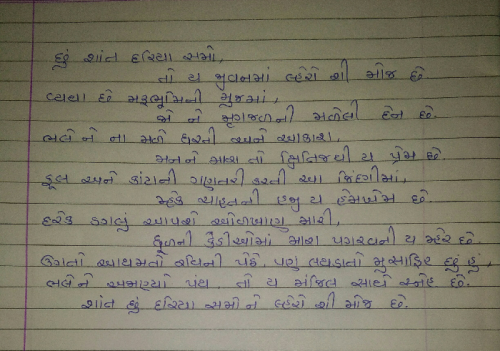 છું શાંત દરિયા સમો,
તો ય જીવનમાં લ્હેરો શી મોજ છે
વ્યથા છે મરૂભૂમિની મુજમાં,
જો ને મૃગજળની મળેલી દેન છે.
ભલે ને ના મળે ધરતી અને આકાશ,
મનને મારા તો ક્ષિતિજથી ય પ્રેમ છે.
ફૂલ અને કાંટાની ગણતરી કરતી આ જિંદગીમાં,
મ્હેક ચાહતની હજુ ય હેમખેમ છે.
દરેક ડગલું આપશે ઓળખાણ મારી,
ધૂળની કેડીઓમાં મારા પગરવની ય મ્હેર છે.
ઉગતો આથમતો રવિની પેઠે, પણ લથડાતો મુસાફિર છું હું,
ભલે ને અજાણ્યો પંથ, તો ય મંજિલ સાથે સ્નેહ છે.
શાંત છું દરિયા સમો ને લ્હેરો શી મોજ છે.